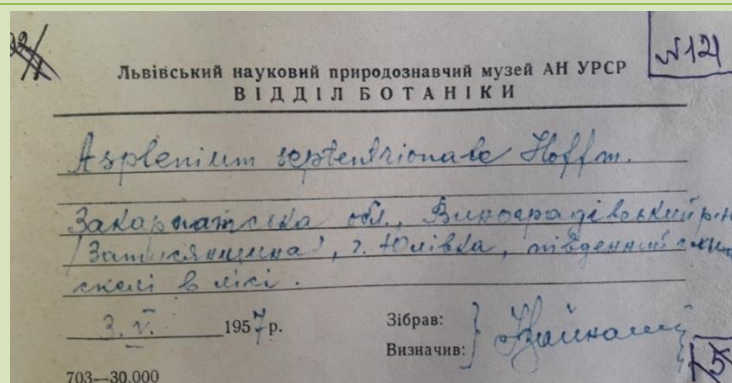 №121
Львівський науковий природознавчий музей АН УРСР
ВІДДІЛ БОТАНІКИ
Asplenium septentrionale Hoffm.
Закарпатська обл., Виноградівський р-н
/Затисянщина/, г. Юлівка, південний схил
скелі в лісі.
3. V. 1957 р.
Зібрав:
Визначив:
703—30.000